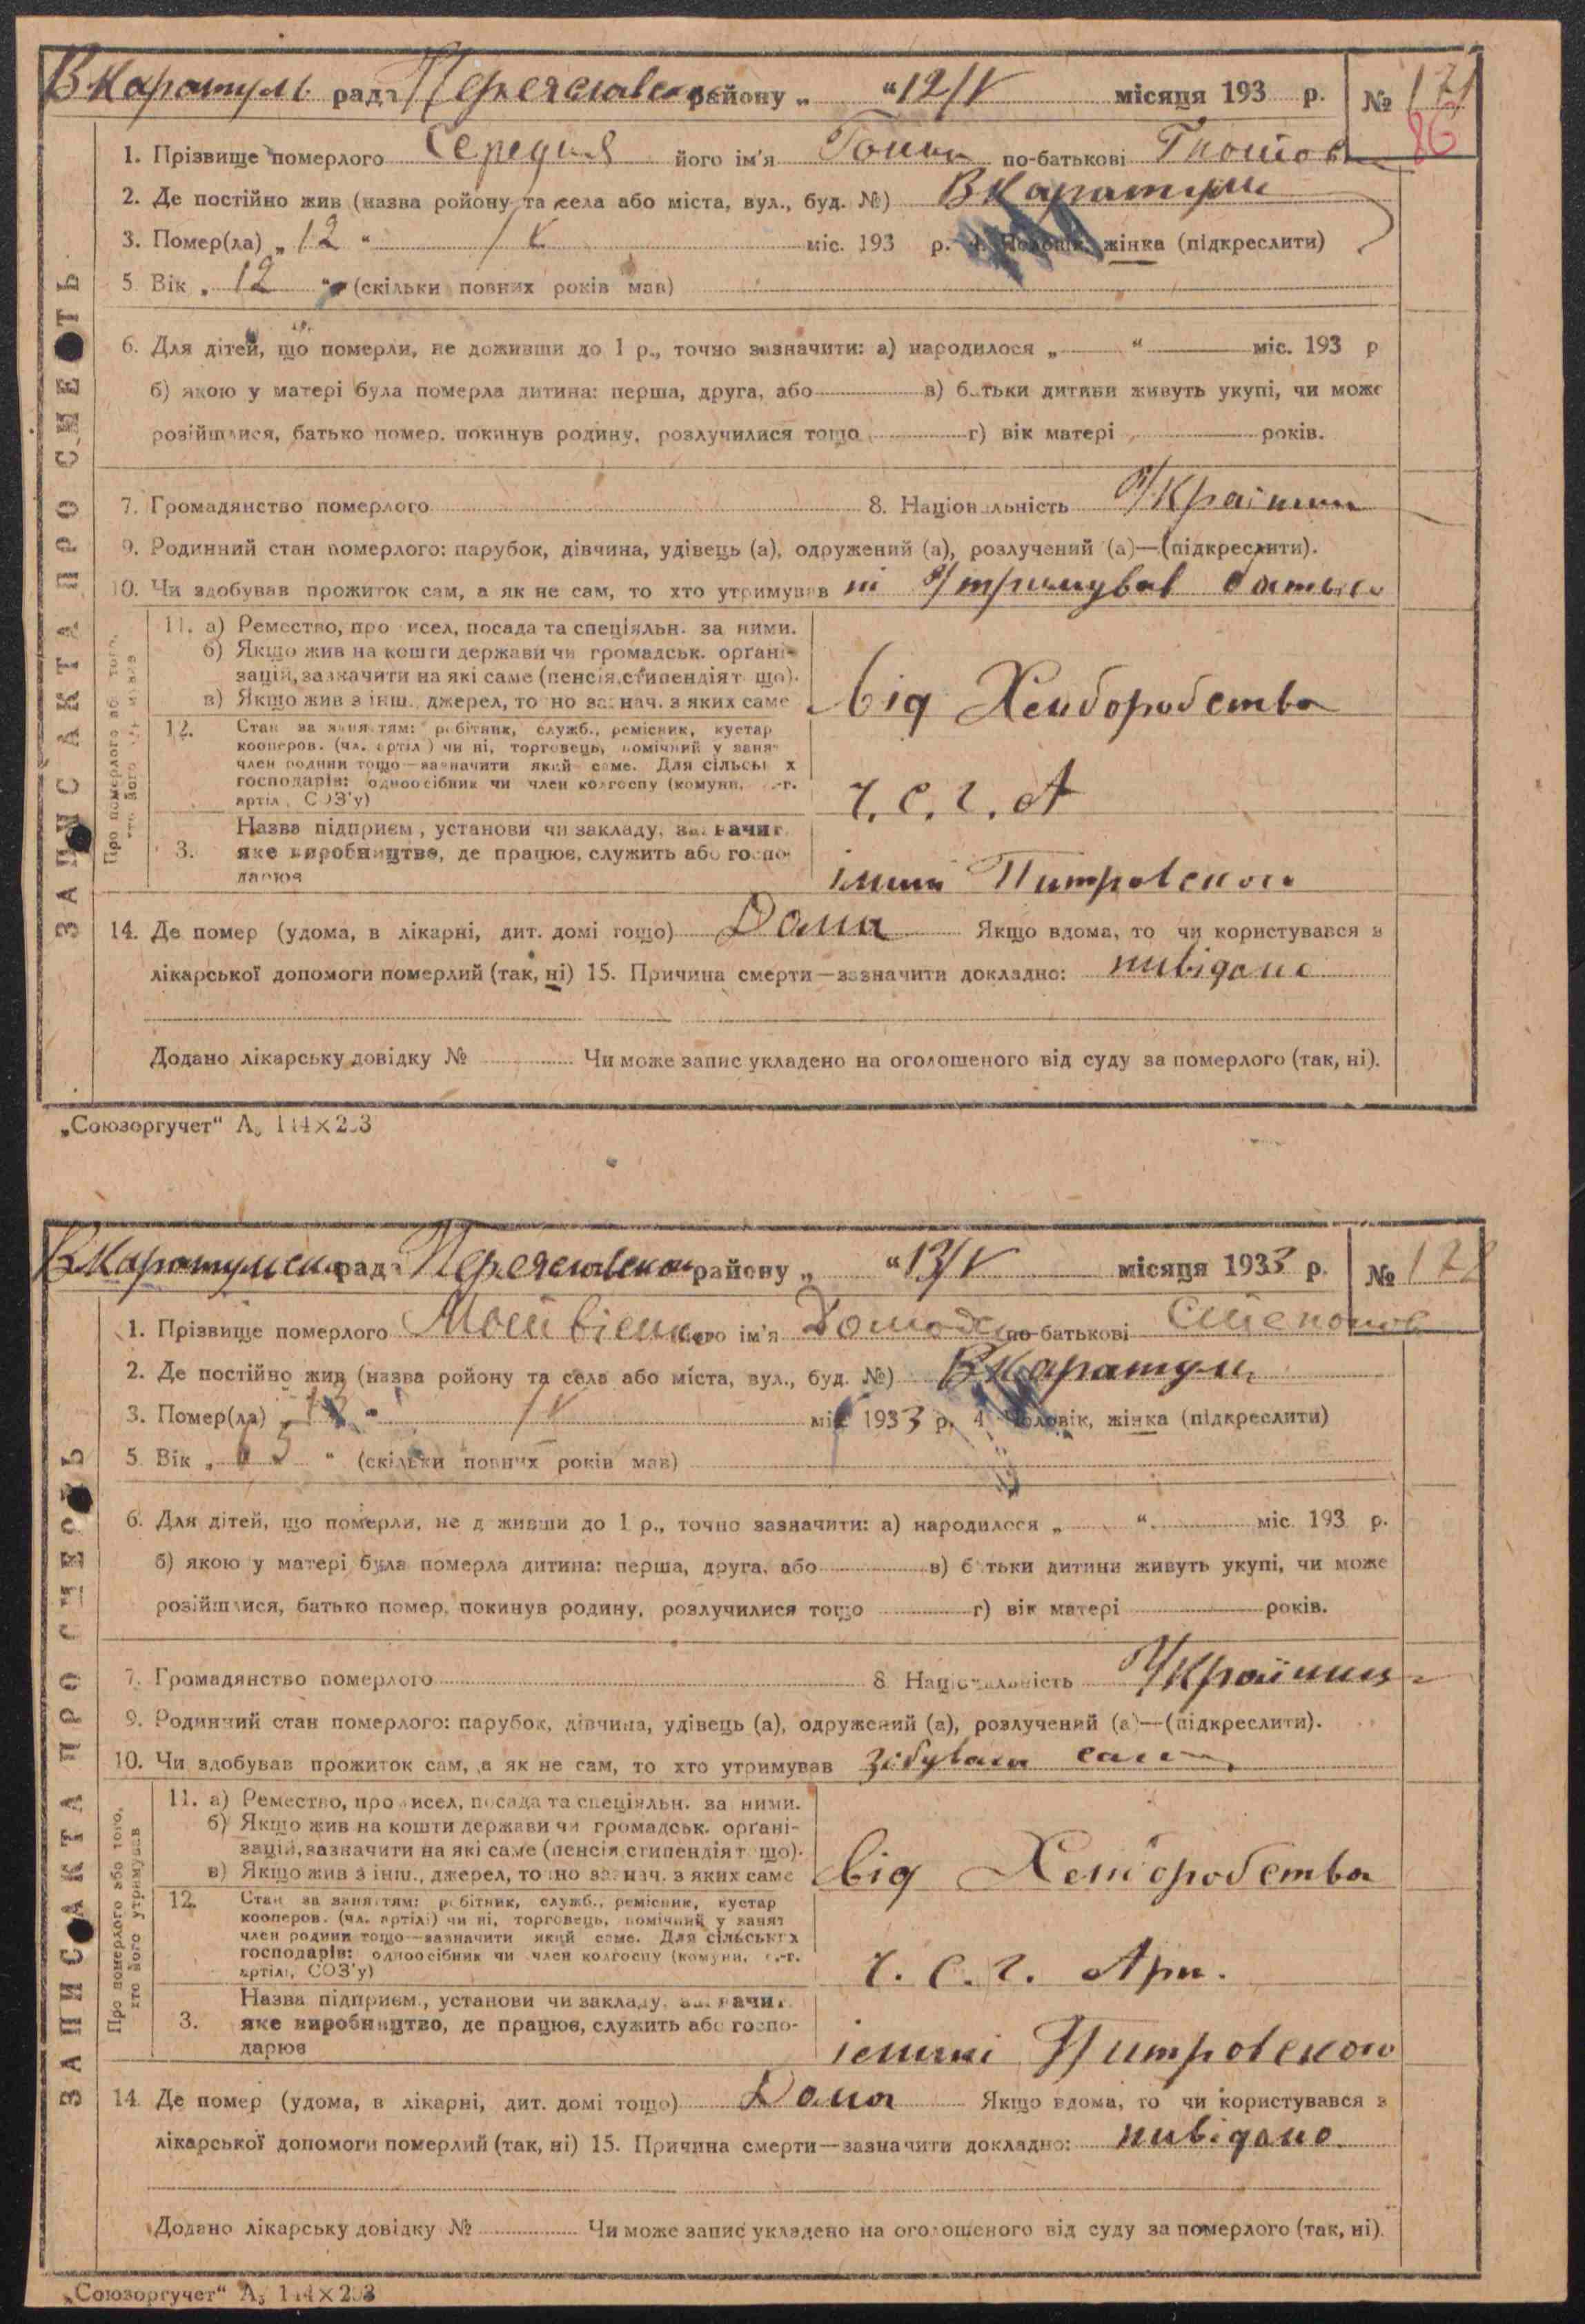 ВКаратуль рада Переяславсько району „ “ 12/V місяця 193 р. № 171
86
1. Прізвище померлого Середня його ім'я по-батькові
2. Де постійно жив (назва ройону та села або міста, вул., буд. №) ВКаратули
3. Помер(ла) „ 12 “ / V міс. 193 р. жінка (підкреслити)
5 Вік „ 12 “ (скільки повних років мав)
6. Для дітей, що померли, не доживши до 1 р., точно зазначити: а) народилося „ “ міс. 193 р
б) якою у матері була померла дитина: перша, друга, або в) батьки дитини живуть укупі, чи може
розійшлися, батько помер, покинув родину, розлучилися тощо г) вік матері років.
7. Громадянство померлого 8. Національність Україн
9. Родинний стан померлого: парубок, дівчина, удівець (а), одружений (а), розлучений (а)—(підкреслити).
10. Чи здобував прожиток сам, а як не сам, то хто утримував ні Утримував батько
ЗАПИС АКТА ПРО СМЕРТЬ
Про померлого або того, хто його утримував
11. а) Ремество, промисел, посада та спеціяльн. за ними.
б) Якщо жив на кошти держави чи громадськ. орґані-
зацій, зазначити на які саме (пенсія, стипендія т. що).
в) Якщо жив з інш., джерел, то но зазнач. з яких саме
від Хліборобства
12. Стан за заняттям: робітник, служб., ремісник, кустар
кооперов. (чл. артіл ) чи ні, торговець, помічний у занят
член родини тощо—зазначити який саме. Для сільськ х
господарів: одноосібник чи член колгоспу (комуни, с.-г.
артілі, СОЗ'у)
ч. с. г. А
3. Назва підприєм., установи чи закладу, зазначит
яке виробництво, де працює, служить або госпо-
дарює
імени Питровского
14. Де помер (удома, в лікарні, дит. домі тощо) Дома Якщо вдома, то чи користувався з
лікарської допомоги померлий (так, ні) 15. Причина смерти—зазначити докладно: нивідано
Додано лікарську довідку № Чи може запис укладено на оголошеного від суду за померлого (так, ні).
„Союзоргучет“ А₅ 144×203
ВКаратульска рада Переяславского району „ “ 13/V місяця 1933 р. № 172
1. Прізвище померлого Мойсієнко його ім'я Домаха по-батькові Степанов
2. Де постійно жив (назва ройону та села або міста, вул., буд. №) ВКаратули
3. Помер(ла) „ 13 “ / V міс 1933 р. 4 Чоловік, жінка (підкреслити)
5 Вік „ “ (скільки повних років мав)
6. Для дітей, що померли, не д живши до 1 р., точно зазначити: а) народилося „ “ міс. 193 р.
б) якою у матері була померла дитина: перша, друга, або в) батьки дитини живуть укупі, чи може
розійшлися, батько помер, покинув родину, розлучилися тощо г) вік матері років.
7. Громадянство померлого 8 Національність Українц
9. Родинний стан померлого: парубок, дівчина, удівець (а), одружений (а), розлучений (а)—(підкреслити).
10. Чи здобував прожиток сам, а як не сам, то хто утримував здбувала сама
ЗАПИС АКТА ПРО СМЕРТЬ
Про померлого або того, хто його утримував
11. а) Ремество, промисел, посада та спеціяльн. за ними.
б) Якщо жив на кошти держави чи громадськ. орґані-
зацій, зазначити на які саме (пенсія стипендія т що).
в) Якщо жив з інш., джерел, то но зазнач. з яких саме
від Хліборобства
12. Стан за заняттям: робітник, служб., ремісник, кустар
кооперов. (чл. артілі) чи ні, торговець, помічний у занят
член родини тощо—зазначити який саме. Для сільських
господарів: одноосібник чи член колгоспу (комуни, с.-г.
артілі, СОЗ'у)
ч. с. г. Арт.
3. Назва підприєм., установи чи закладу, зазначит
яке виробництво, де працює, служить або госпо-
дарює
імени Питровского
14. Де помер (удома, в лікарні, дит. домі тощо) Дома Якщо вдома, то чи користувався з
лікарської допомоги померлий (так, ні) 15. Причина смерти—зазначити докладно: нивідано
Додано лікарську довідку № Чи може запис укладено на оголошеного від суду за померлого (так, ні).
„Союзоргучет“ А₅ 144×203